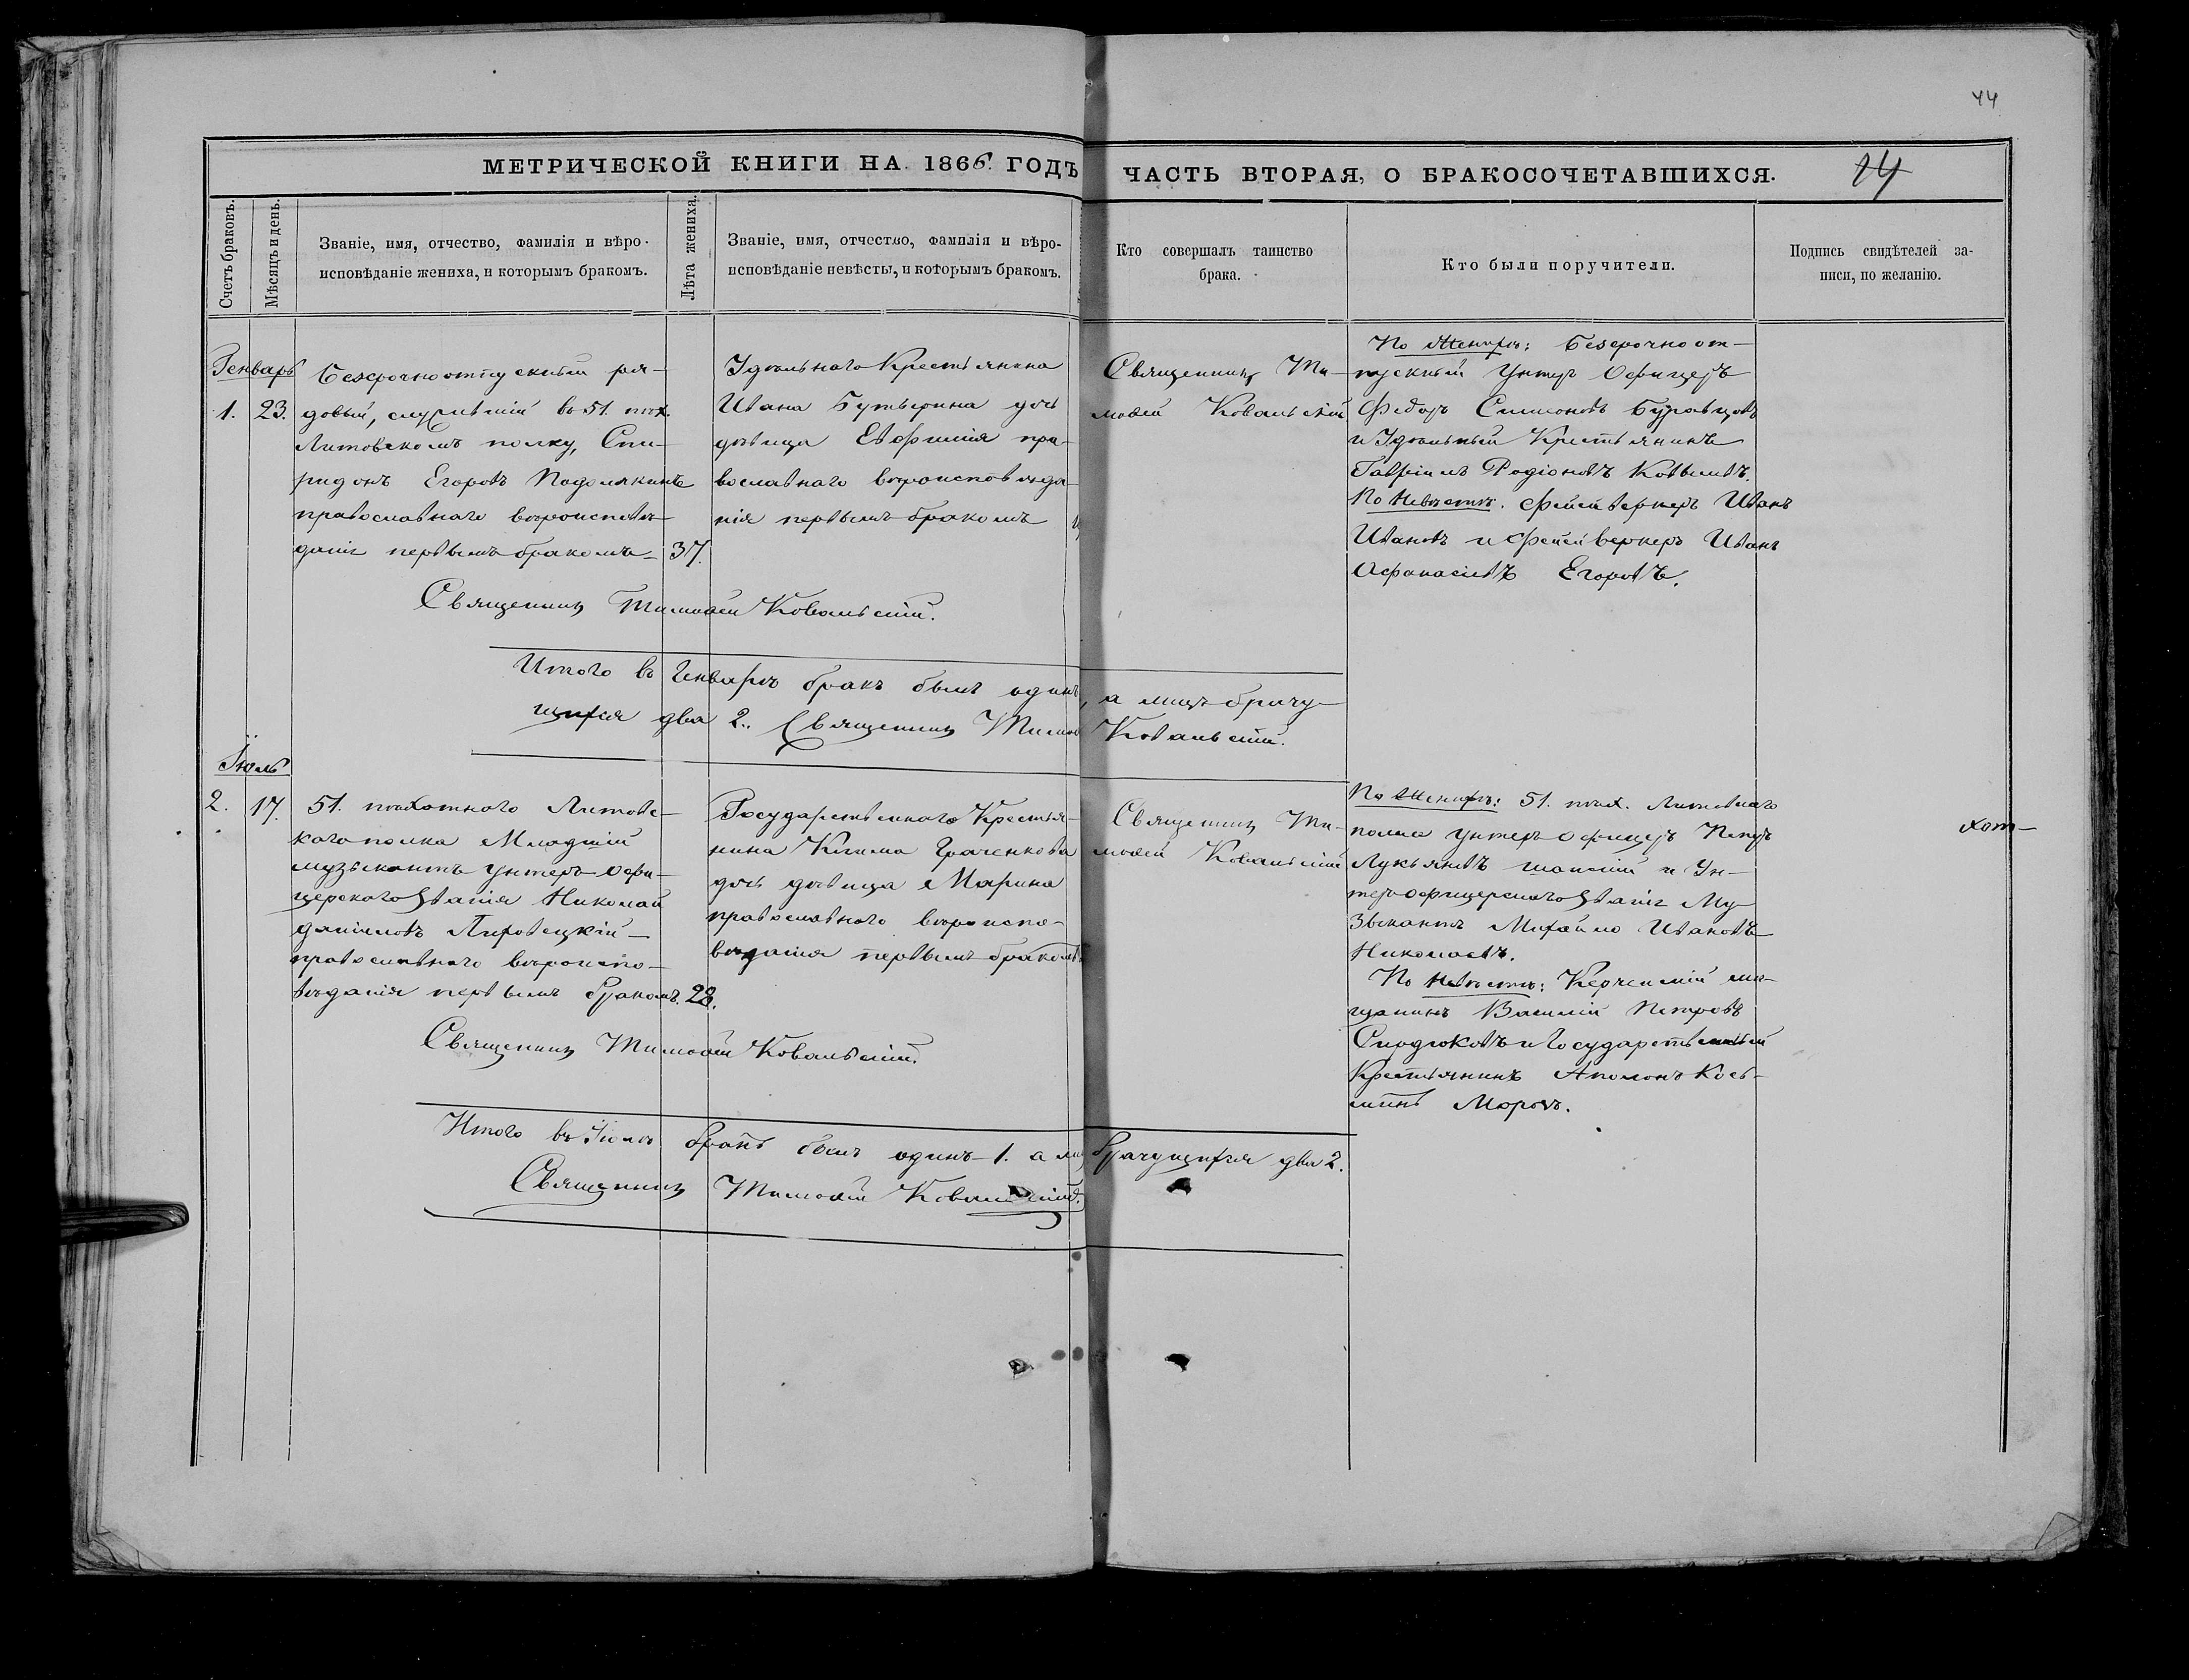 44
МЕТРИЧЕСКОЙ КНИГИ НА 1866. ГОДЪ
ЧАСТЬ ВТОРАЯ, О БРАКОСОЧЕТАВШИХСЯ.
14
Счетъ браковъ.
Мѣсяцъ и день.
Званіе, имя, отчество, фамилія и вѣро-
исповѣданіе жениха, и которымъ бракомъ.
Лѣта жениха.
Званіе, имя, отчество, фамилія и вѣро-
исповѣданіе невѣсты, и которымъ бракомъ.
Кто совершалъ таинство
брака.
Кто были поручители.
Подпись свидѣтелей за-
писи, по желанію.
Генварь
1. 23.
Безсрочноотпускный ря-
довый, служившій въ 51. пѣх.
Литовскомъ полку, Спи-
ридонъ Егоровъ Подолякинъ
православнаго вѣроисповѣ-
данія первымъ бракомъ
37.
Удѣльнаго Крестьянина
Ивана Бутырина дочь
дѣвица Евфимія пра-
вославнаго вѣроисповѣда-
нія первымъ бракомъ
Священникъ Ти-
моѳей Ковальскій
По Женихѣ: Безсрочноот-
пускный Унтеръ Офицеръ
Федоръ Симоновъ Буравцовъ
и Удѣльный Крестьянинъ
Гавріилъ Родіоновъ
По Невѣстѣ: Фейейверкеръ Иванъ
Ивановъ и Фейейверкеръ Иванъ
Афанасіевъ Егоровъ.
Священникъ Тимоѳей Ковальскій.
Итого въ Генварѣ бракъ былъ одинъ, а лицъ брачу-
щихся два 2. Священникъ Тимоѳей Ковальскій.
Іюль
2. 17.
51. пѣхотнаго Литовс-
каго полка Младшій
музыкантъ унтеръ-офи-
церскаго званія Николай
Даніиловъ Пировецкій
православнаго вѣроиспо-
вѣданія первымъ бракомъ.
28.
Государственнаго Крестья-
нина Клима Граченкова
дочь дѣвица Марина
православнаго вѣроиспо-
вѣданія первымъ бракомъ
Священникъ Ти-
моѳей Ковальскій
По Женихѣ: 51. пѣх. Литовскаго
полка унтеръ-офицеръ Петръ
Лукьяновъ и Ун-
теръ-офицерскаго званія Му-
зыкантъ Михайло Ивановъ
Николаевъ.
По Невѣстѣ: Керченскій мѣ-
щанинъ Василій Петровъ
Сидюковъ и Государственный
Крестьянинъ Аполонъ Кось-
минъ
Священникъ Тимоѳей Ковальскій.
Итого въ Іюлѣ бракъ былъ одинъ 1. а лицъ брачущихся два 2.
Священникъ Тимоѳей Ковальскій.